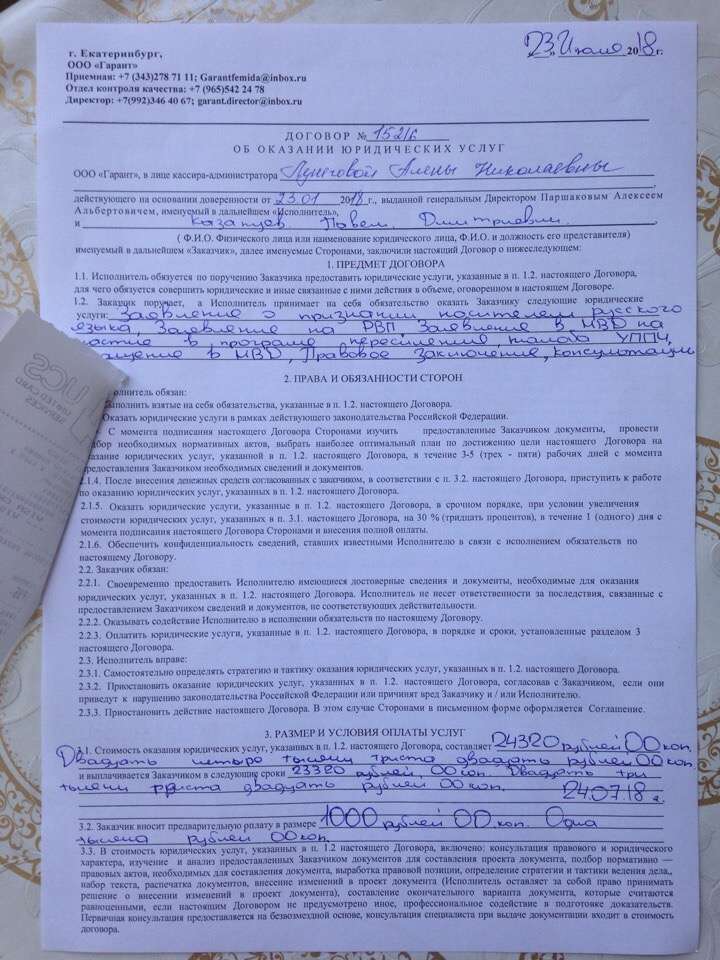 г. Екатеринбург,
ООО «Гарант»
Приемная: +7 (343)278 71 11; Garantfemida@inbox.ru
Отдел контроля качества: +7 (965)542 24 78
Директор: +7(992)346 40 67; garant.director@inbox.ru
23 Июля 2018г.
ДОГОВОР № 15216
ОБ ОКАЗАНИИ ЮРИДИЧЕСКИХ УСЛУГ
ООО «Гарант», в лице кассира-администратора Алены Николаевны
действующего на основании доверенности от 23.01 2018 г., выданной генеральным Директором Паршаковым Алексеем
Альбертовичем, именуемый в дальнейшем «Исполнитель»,
и Казанцев Павел Дмитриевич
( Ф.И.О. Физического лица или наименование юридического лица, Ф.И.О. и должность его представителя)
именуемый в дальнейшем «Заказчик», далее именуемые Сторонами, заключили настоящий Договор о нижеследующем:
1. ПРЕДМЕТ ДОГОВОРА
1.1. Исполнитель обязуется по поручению Заказчика предоставить юридические услуги, указанные в п. 1.2. настоящего Договора,
для чего обязуется совершить юридические и иные связанные с ними действия в объеме, оговоренном в настоящем Договоре.
1.2. Заказчик поручает, а Исполнитель принимает на себя обязательство оказать Заказчику следующие юридические
услуги: Заявление о признании носителем русского
языка, Заявление на РВП, Заявление в МВД на
участие в програме переселения, жалоба УППЧ,
ащение в МВД, Правовое Заключение, консультации
2. ПРАВА И ОБЯЗАННОСТИ СТОРОН
олнитель обязан:
ыполнить взятые на себя обязательства, указанные в п. 1.2. настоящего Договора.
Оказать юридические услуги в рамках действующего законодательства Российской Федерации.
С момента подписания настоящего Договора Сторонами изучить предоставленные Заказчиком документы, провести
бор необходимых нормативных актов, выбрать наиболее оптимальный план по достижению цели настоящего Договора на
казание юридических услуг, указанной в п. 1.2. настоящего Договора, в течение 3-5 (трех - пяти) рабочих дней с момента
редоставления Заказчиком необходимых сведений и документов.
2.1.4. После внесения денежных средств согласованных с заказчиком, в соответствии с п. 3.2. настоящего Договора, приступить к работе
по оказанию юридических услуг, указанных в п. 1.2. настоящего Договора.
2.1.5. Оказать юридические услуги, указанные в п. 1.2. настоящего Договора, в срочном порядке, при условии увеличения
стоимости юридических услуг, указанных в п. 3.1. настоящего Договора, на 30 % (тридцать процентов), в течение 1 (одного) дня с
момента подписания настоящего Договора Сторонами и внесения полной оплаты.
2.1.6. Обеспечить конфиденциальность сведений, ставших известными Исполнителю в связи с исполнением обязательств по
настоящему Договору.
2.2. Заказчик обязан:
2.2.1. Своевременно предоставить Исполнителю имеющиеся достоверные сведения и документы, необходимые для оказания
юридических услуг, указанных в п. 1.2. настоящего Договора. Исполнитель не несет ответственности за последствия, связанные с
предоставлением Заказчиком сведений и документов, не соответствующих действительности.
2.2.2. Оказывать содействие Исполнителю в исполнении обязательств по настоящему Договору.
2.2.3. Оплатить юридические услуги, указанные в п. 1.2. настоящего Договора, в порядке и сроки, установленные разделом 3
настоящего Договора.
2.3. Исполнитель вправе:
2.3.1. Самостоятельно определять стратегию и тактику оказания юридических услуг, указанных в п. 1.2. настоящего Договора.
2.3.2. Приостановить оказание юридических услуг, указанных в п. 1.2. настоящего Договора, согласовав с Заказчиком, если они
приведут к нарушению законодательства Российской Федерации или причинят вред Заказчику и / или Исполнителю.
2.3.3. Приостановить действие настоящего Договора. В этом случае Сторонами в письменном форме оформляется Соглашение.
3. РАЗМЕР И УСЛОВИЯ ОПЛАТЫ УСЛУГ
3.1. Стоимость оказания юридических услуг, указанных в п. 1.2. настоящего Договора, составляет 24320 рублей 00 коп.
Двадцать четыре тысячи триста двадцать рублей 00 коп
и выплачивается Заказчиком в следующие сроки 23320 рублей, 00 коп. Двадцать три
тысячи триста двадцать рублей 00 коп. 24.07.18 г.
3.2. Заказчик вносит предварительную оплату в размере 1000 рублей 00 коп. Одна
тысяча рублей 00 коп.
3.3. В стоимость юридических услуг, указанных в п. 1.2 настоящего Договора, включено; консультация правового и юридического
характера, изучение и анализ предоставленных Заказчиком документов для составления проекта документа, подбор нормативно —
правовых актов, необходимых для составления документа, выработка правовой позиции, определение стратегии и тактики ведения дела.,
набор текста, распечатка документов, внесение изменений в проект документа (Исполнитель оставляет за собой право принимать
решение о внесении изменений в проект документа), составление окончательного варианта документа, которые считаются
равноценными, если настоящим Договором не предусмотрено иное, профессиональное содействие в подготовке доказательств.
Первичная консультация предоставляется на безвозмездной основе, консультация специалиста при выдаче документации входит в стоимость
договора.
UCS
UNITED CARD
SERVICES